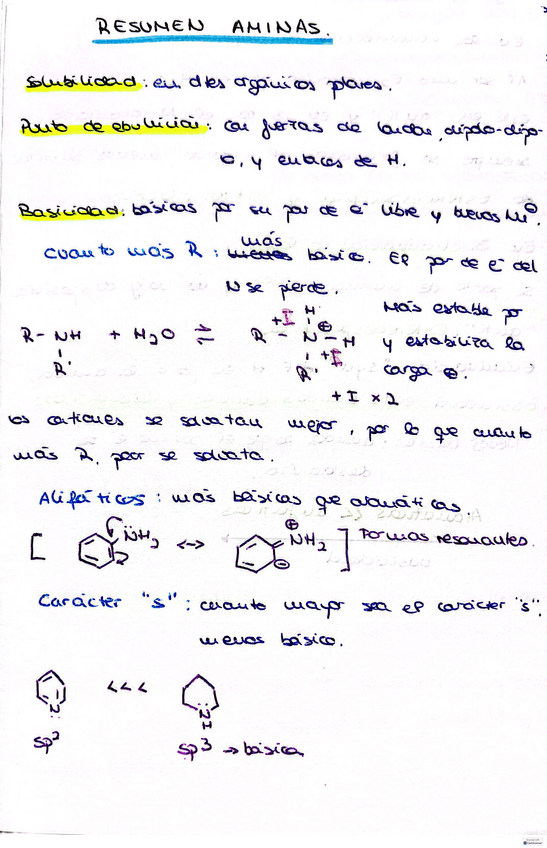 RESUMEN AMINAS.
Solubilidad: en dtes orgánicos polares.
Punto de ebullición: con fuerzas de london, dipolo-dipo-
lo, y enlaces de H.
Basicidad: básicas por su par de e⁻ libre y buenos Nu⊖.
más
Cuanto más R: menos básico. El par de e⁻ del
N se pierde.
R-NH + H₂O ⇌ R-N-H
R'
H
⊕
+I
+I
R'
Más estable por
y estabiliza la
carga ⊕.
+I x2
los cationes se solvatan mejor, por lo que cuanto
más R, peor se solvata.
Alifáticos: más básicas que aromáticas.
[ N̈H₂ <-> ⊕NH₂ ⊖ ] Formas resonantes.
Carácter "s": cuanto mayor sea el carácter "s",
menos básico.
N: <<< N̈ H
sp² sp³ → básica